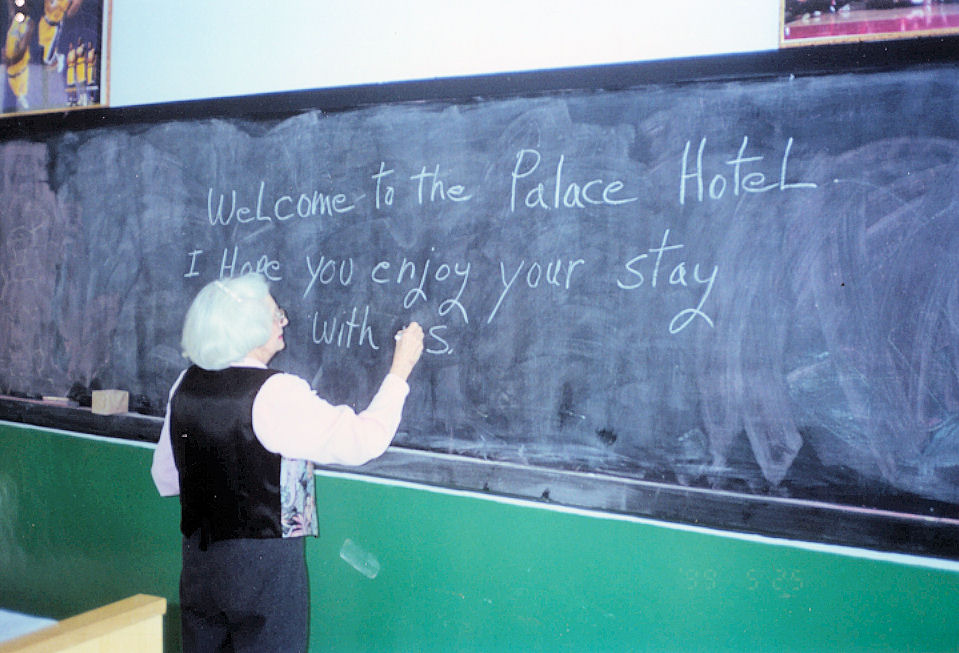 Welcome to the Palace Hotel
I Hope you enjoy your stay
with s.
99 5 25